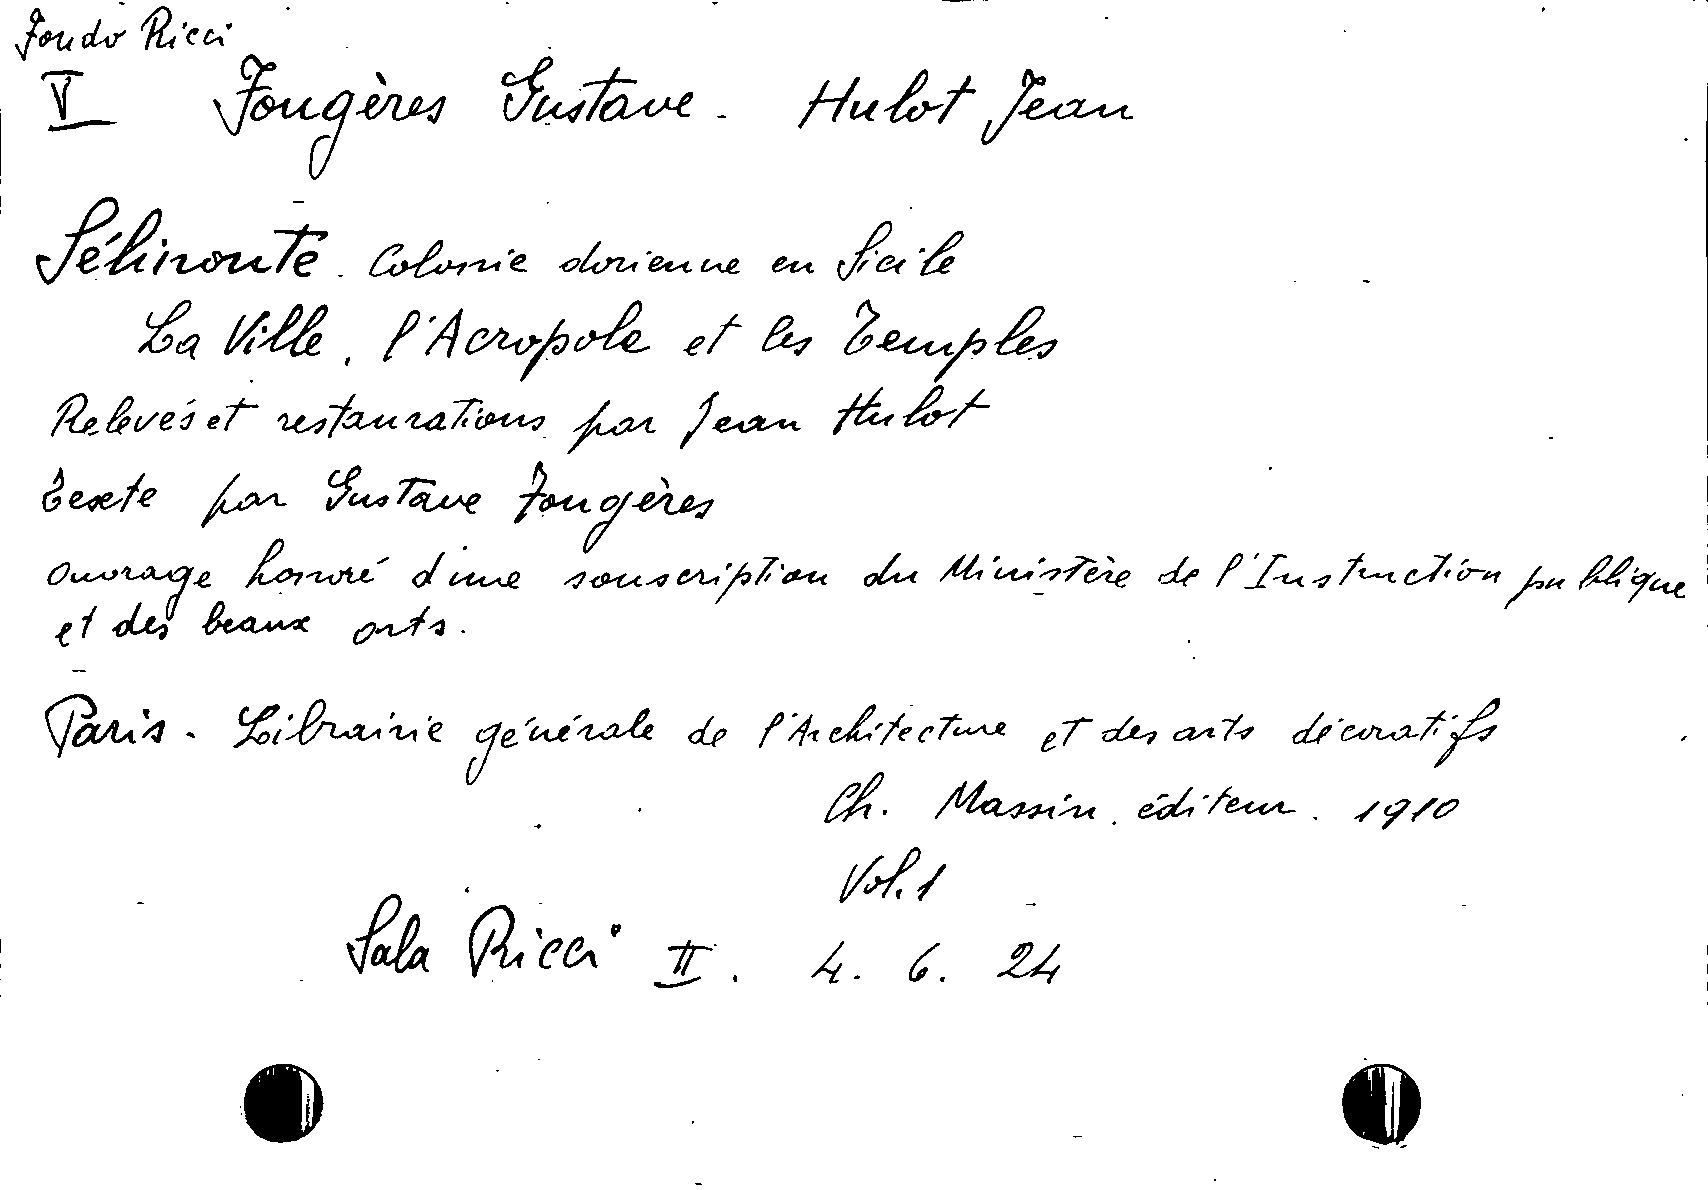 Fondo Ricci
V Fougères Gustave. Hulot Jean
Sélinonte. Colonie dorienne en Sicile
La Ville, l'Acropole et les Temples
Relevés et restaurations par Jean Hulot
Texte par Gustave Fougères
ouvrage honoré d'une souscription du Ministère de l'Instruction publique
et des beaux arts.
Paris. Librairie générale de l'Architecture et des arts décoratifs
Ch. Massin. éditeur. 1910
Vol. 1
Sala Ricci II. 4. 6. 24